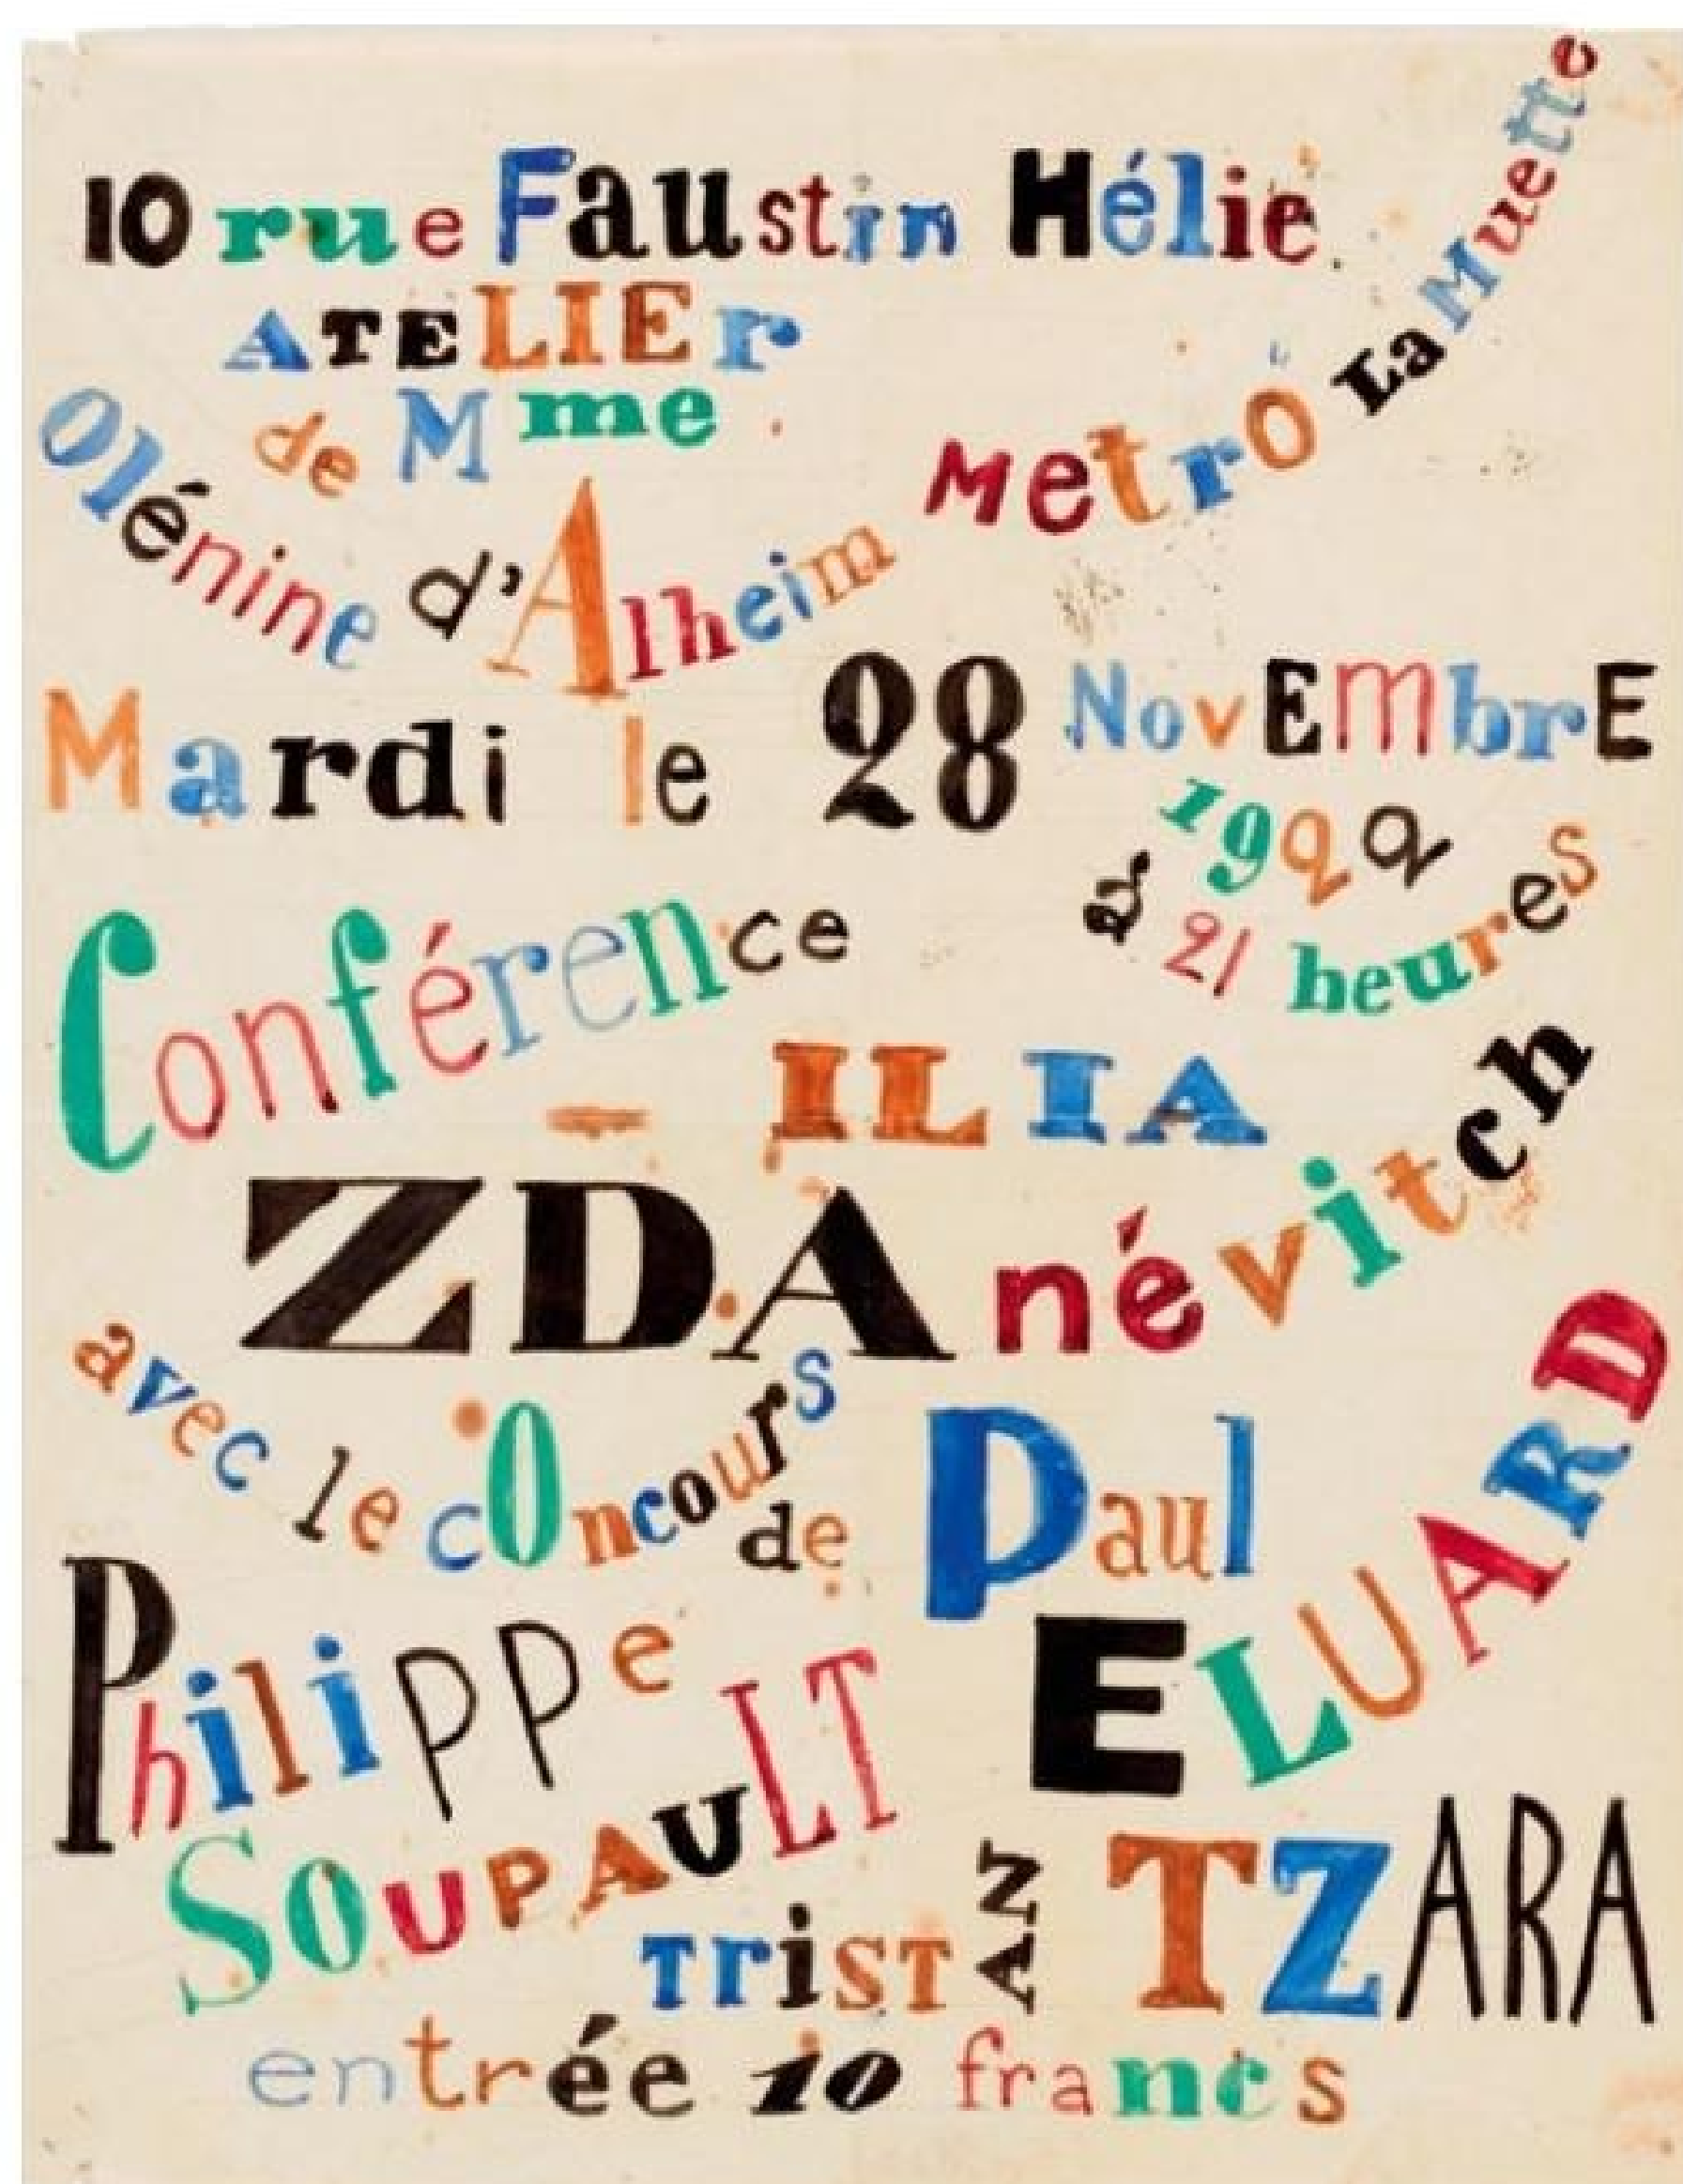 10 rue Faustin Hélie.
ATELIEr
de Mme
Olénine d'Alheim
Metro La Muette
Mardi le 28 NovEmbrE
1922
à 21 heures
Conférence
- ILIA
ZDAnévitch
avec le cOncours
de Paul
ELUARD
PhiliPPe
SOUPAULT
TrisTAN TZARA
entrée 10 francs